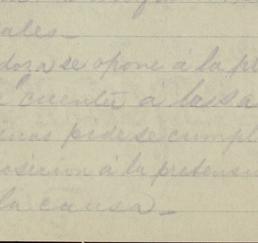 ales_
doza se opone á la p
cuenta á la s a
inas pide se cumpl
posicion á la pretens
la causa_